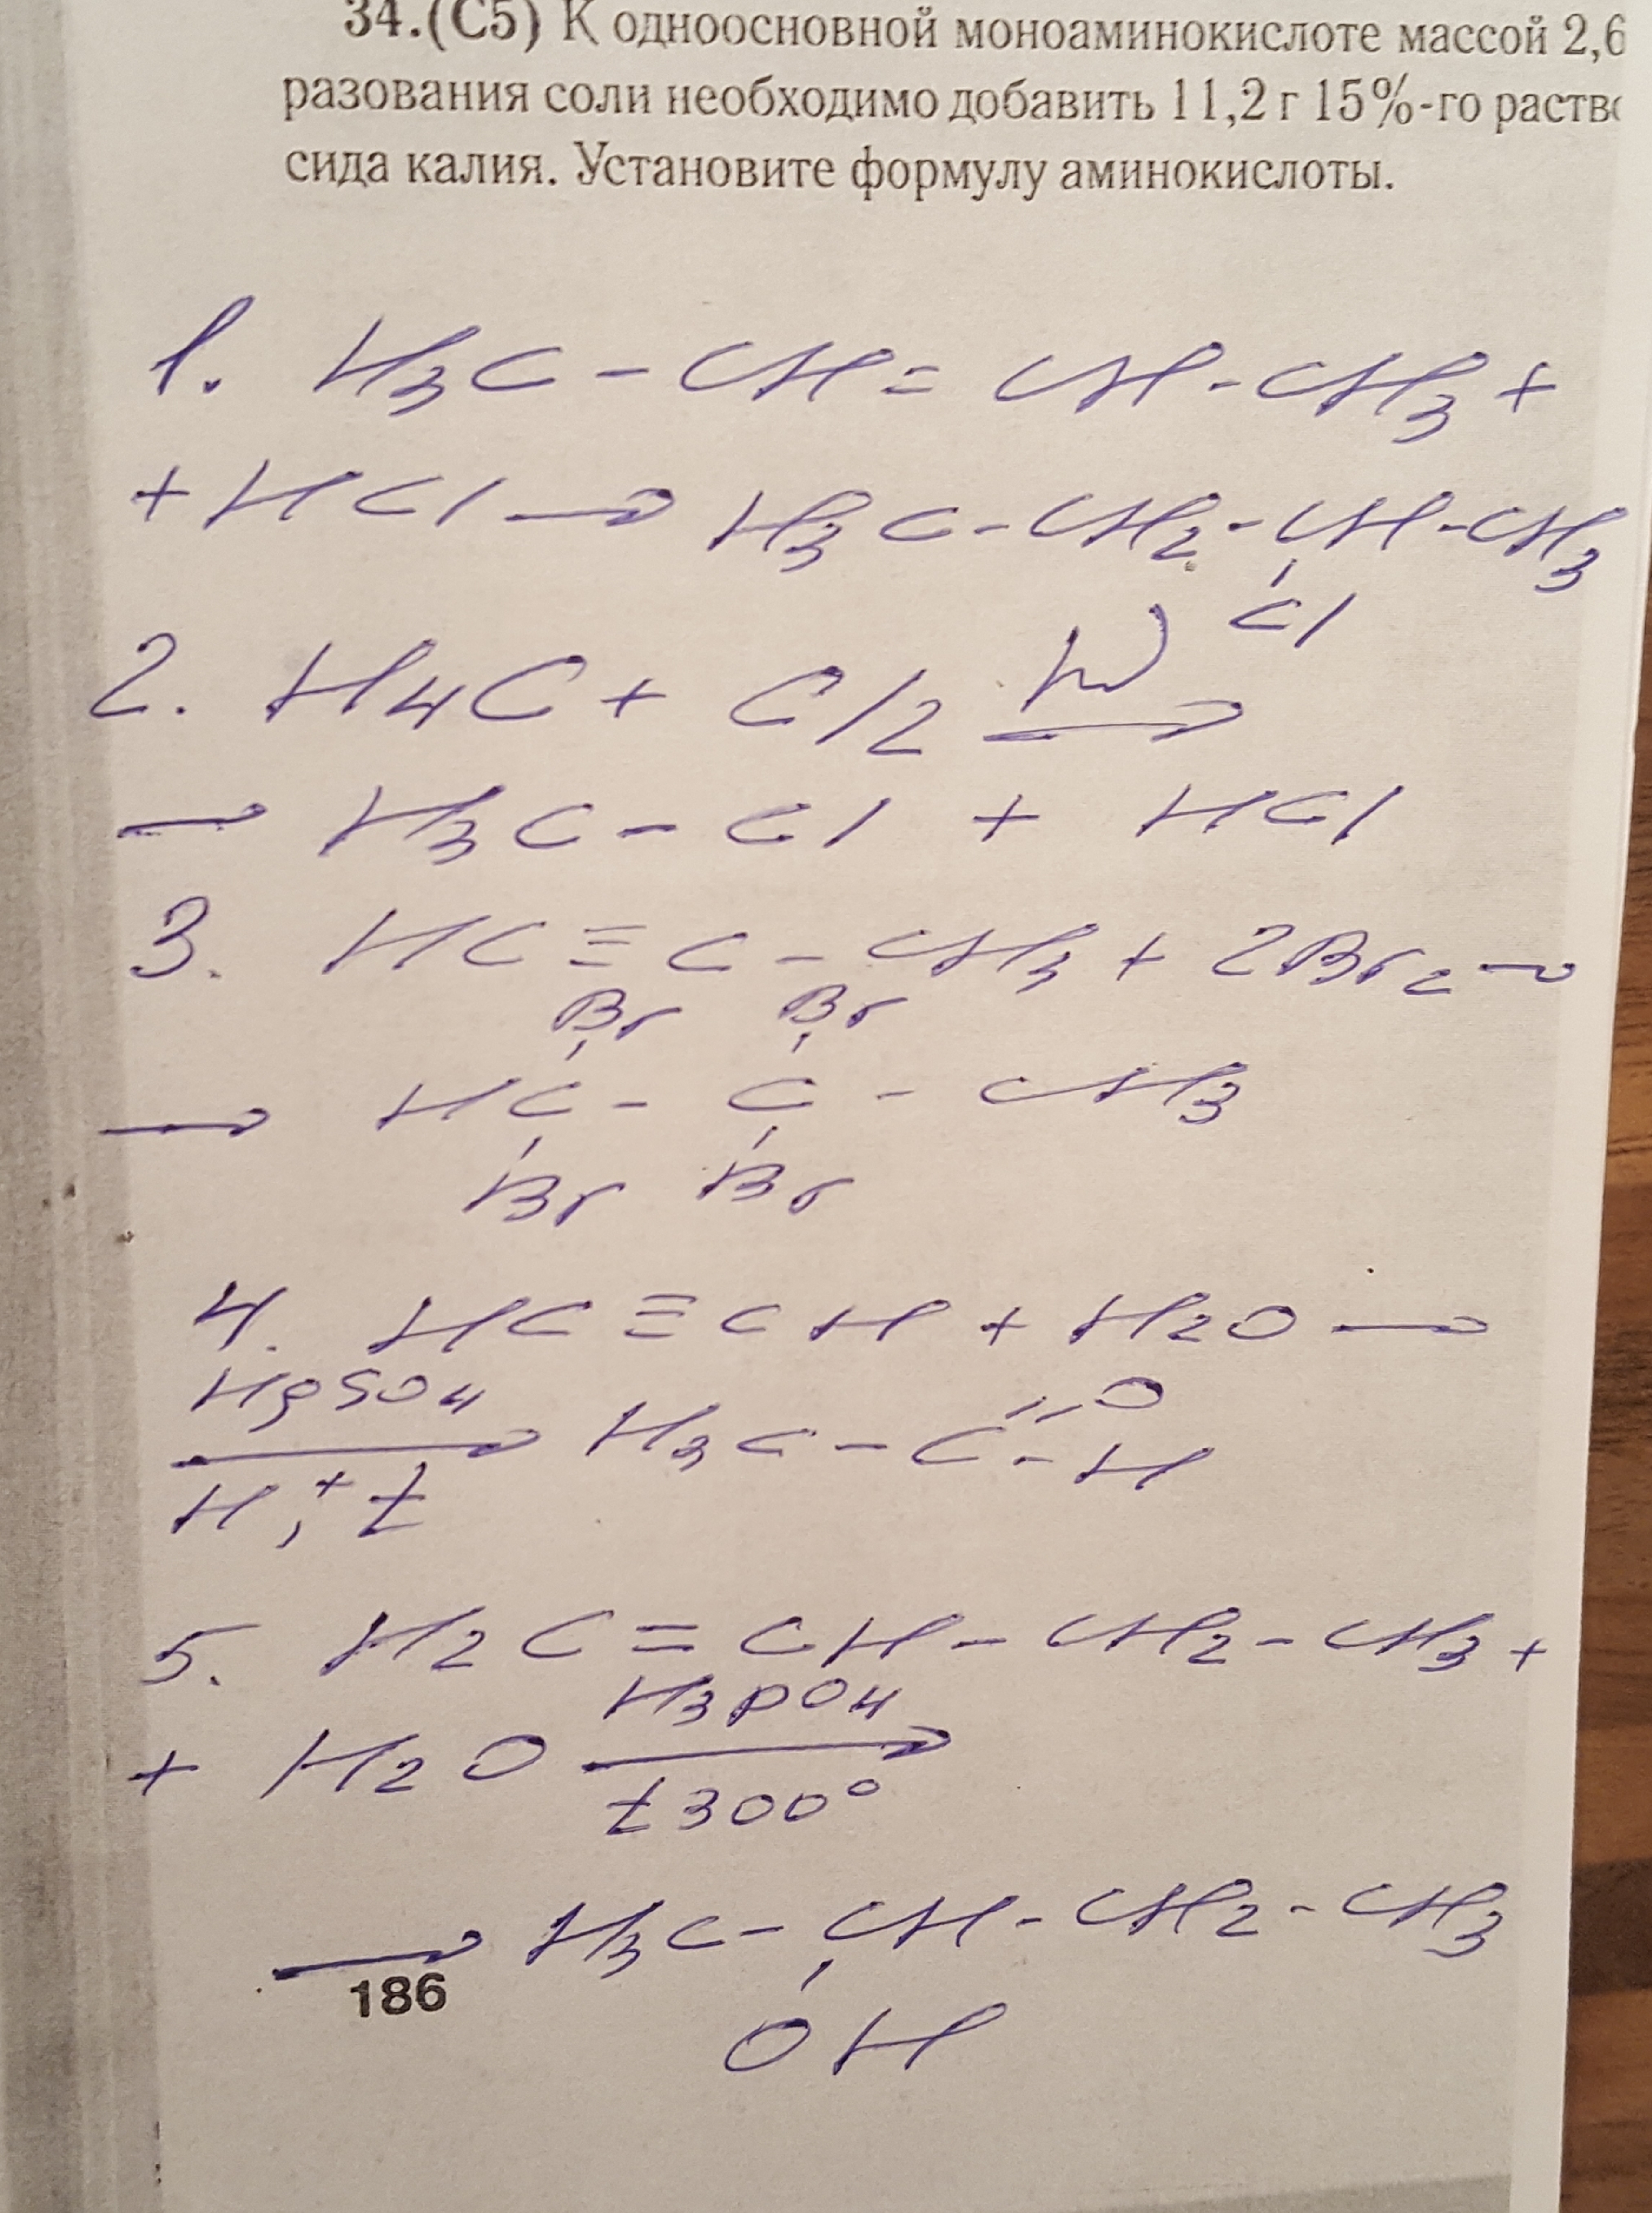 34.(С5) К одноосновной моноаминокислоте массой 2,6
разования соли необходимо добавить 11,2 г 15%-го раство
сида калия. Установите формулу аминокислоты.
1. H3C - CH = CH - CH3 +
+ HCl → H3C - CH2 - CH - CH3
Cl
hν
2. H4C + Cl2 →
→ H3C - Cl + HCl
3. HC ≡ C - CH3 + 2Br2 →
Br Br
→ HC - C - CH3
Br Br
4. HC ≡ CH + H2O →
HgSO4
→ H3C - C = O
- H
H+, t
5. H2C = CH - CH2 - CH3 +
H3PO4
+ H2O →
t 300°
→ H3C - CH - CH2 - CH3
186
OH